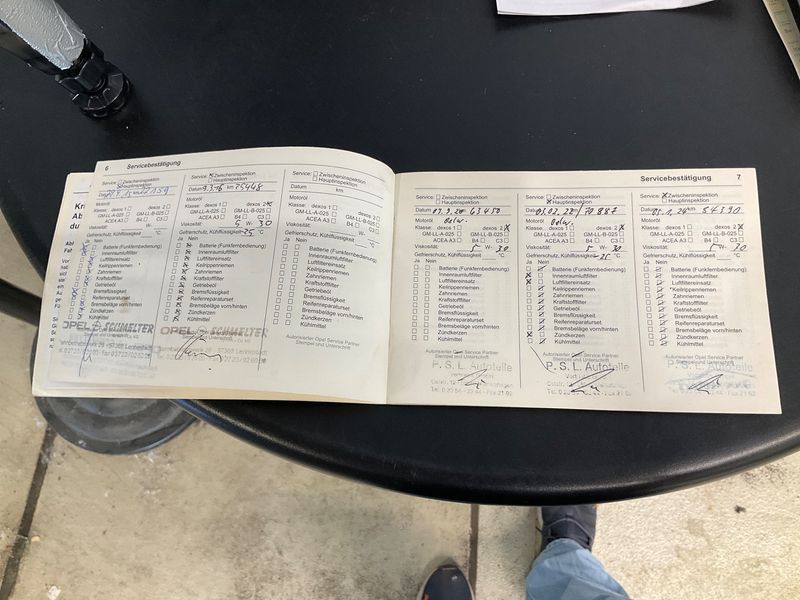 6 Servicebestätigung
Service: Zwischeninspektion
Hauptinspektion
Datum
Motoröl
Klasse: dexos 1 dexos 2
GM-LL-A-025 GM-LL-B-025
ACEA A3 B4 C3
Viskosität:
Gefrierschutz, Kühlflüssigkeit: °C
Ja Nein
Batterie (Funkfernbedienung)
Innenraumluftfilter
Luftfiltereinsatz
Keilrippenriemen
Zahnriemen
Kraftstofffilter
Getriebeöl
Bremsflüssigkeit
Reifenreparaturset
Bremsbeläge vorn/hinten
Zündkerzen
Kühlmittel
OPEL SCHMELTER
Service: Zwischeninspektion
Hauptinspektion
Datum 9.3.16 km 25448
Motoröl
Klasse: dexos 1 dexos 2
GM-LL-A-025 GM-LL-B-025
ACEA A3 B4 C3
Viskosität: 5 W- 30
Gefrierschutz, Kühlflüssigkeit -25 °C
Ja Nein
Batterie (Funkfernbedienung)
Innenraumluftfilter
Luftfiltereinsatz
Keilrippenriemen
Zahnriemen
Kraftstofffilter
Getriebeöl
Bremsflüssigkeit
Reifenreparaturset
Bremsbeläge vorn/hinten
Zündkerzen
Kühlmittel
OPEL SCHMELTER
Service: Zwischeninspektion
Hauptinspektion
Datum km
Motoröl
Klasse: dexos 1 dexos 2
GM-LL-A-025 GM-LL-B-025
ACEA A3 B4 C3
Viskosität: W-
Gefrierschutz, Kühlflüssigkeit: °C
Ja Nein
Batterie (Funkfernbedienung)
Innenraumluftfilter
Luftfiltereinsatz
Keilrippenriemen
Zahnriemen
Kraftstofffilter
Getriebeöl
Bremsflüssigkeit
Reifenreparaturset
Bremsbeläge vorn/hinten
Zündkerzen
Kühlmittel
Autorisierter Opel Service Partner
Stempel und Unterschrift
Servicebestätigung 7
Service: Zwischeninspektion
Hauptinspektion
Datum km 63450
Motoröl
Klasse: dexos 1 dexos 2 X
GM-LL-A-025 GM-LL-B-025
ACEA A3 B4 C3
Viskosität: 5 W- 30
Gefrierschutz, Kühlflüssigkeit: °C
Ja Nein
Batterie (Funkfernbedienung)
Innenraumluftfilter
Luftfiltereinsatz
Keilrippenriemen
Zahnriemen
Kraftstofffilter
Getriebeöl
Bremsflüssigkeit
Reifenreparaturset
Bremsbeläge vorn/hinten
Zündkerzen
Kühlmittel
Autorisierter Opel Service Partner
Stempel und Unterschrift
P. S. L. Autoteile
Service: Zwischeninspektion
X Hauptinspektion
Datum 03.02.22 70887
Motoröl
Klasse: dexos 1 dexos 2 X
GM-LL-A-025 GM-LL-B-025
ACEA A3 B4 C3
Viskosität: 5 W- 30
Gefrierschutz, Kühlflüssigkeit -25 °C
Ja Nein
Batterie (Funkfernbedienung)
Innenraumluftfilter
Luftfiltereinsatz
Keilrippenriemen
Zahnriemen
Kraftstofffilter
Getriebeöl
Bremsflüssigkeit
Reifenreparaturset
Bremsbeläge vorn/hinten
Zündkerzen
Kühlmittel
Autorisierter Opel Service Partner
Stempel und Unterschrift
P. S. L. Autoteile
Service: X Zwischeninspektion
Hauptinspektion
Datum km
Motoröl
Klasse: dexos 1 dexos 2 X
GM-LL-A-025 GM-LL-B-025
ACEA A3 B4 C3
Viskosität: 5 W-
Gefrierschutz, Kühlflüssigkeit: °C
Ja Nein
Batterie (Funkfernbedienung)
Innenraumluftfilter
Luftfiltereinsatz
Keilrippenriemen
Zahnriemen
Kraftstofffilter
Getriebeöl
Bremsflüssigkeit
Reifenreparaturset
Bremsbeläge vorn/hinten
Zündkerzen
Kühlmittel
Autorisierter Opel Service Partner
Stempel und Unterschrift
P. S. L. Autoteile